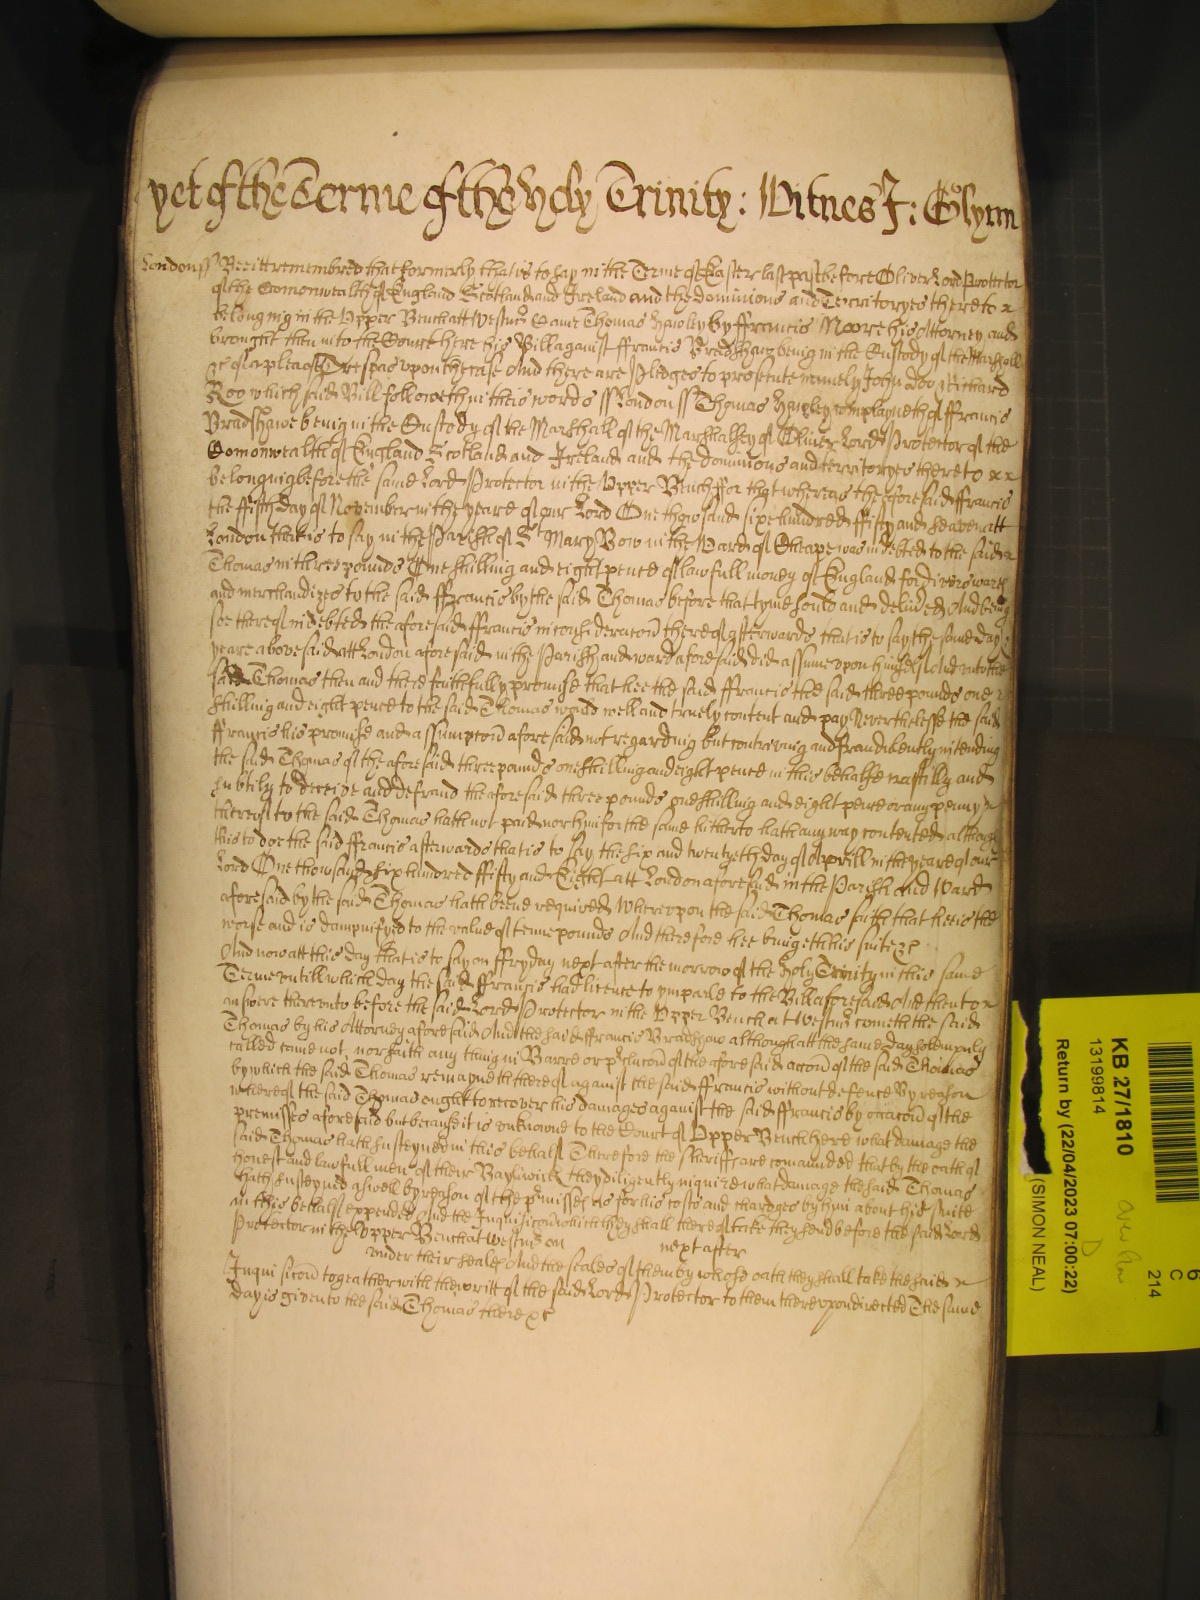 yet of the Terme of the Holy Trinity: Witnes J: Glynn
London ss Bee itt remembred that formerly that is to say in the Terme of Easter last past before Oliver Lord Protector
of the Comonwealth of England Scotland and Ireland and the dominions and Territoryes thereto
belonging in the Upper Bench att Westmr Came Thomas Hawley by ffrancis Moore his Attorney and
brought then into the Court here his Bill against ffrancis Bradshawe being in the Custody of the Marshall
&c of a plea of Trespas upon the case And there are Pledges to prosecute namely John Doo & Richard
Roo which said Bill followeth in theis words ss London ss Thomas Hawley complayneth of ffrancis
Bradshawe being in the Custody of the Marshall of the Marshalsey of Oliver Lord Protector of the
Comonwealth of England Scotland and Ireland and the dominions and territoryes thereto
belonging before the same Lord Protector in the Upper Bench ffor that whereas the aforesaid ffrancis
the fifth day of November in the yeare of our Lord One thowsand six hundred ffifty and seaven att
London that is to say in the Parish of St Mary Bow in the Ward of Cheape was indebted to the said
Thomas in three pounds One shilling and eight pence of lawfull money of England for divers wares
and merchandizes to the said ffrancis by the said Thomas before that tyme sould and delived And being
soe thereof indebted the aforesaid ffrancis in consideracon thereof afterwards that is to say the same day &
yeare abovesaid att London aforesaid in the Parish and ward aforesaid did assume upon himself And to the
said Thomas then and there faithfully promise that hee the said ffrancis the said three pounds one
shilling and eight pence to the said Thomas would well and truely content and pay Neverthelesse the said
ffrancis his promise and assumpcon aforesaid not regarding but contriving and fraudulently intending
the said Thomas of the aforesaid three pounds one shilling and eight pence in this behalfe craftily and
subtily to deceive and defraud the aforesaid three pounds one shilling and eight pence or any penny
thereof to the said Thomas hath not paid nor him for the same hitherto hath any way contented although
this to doe the said ffrancis afterwards that is to say the six and twentyeth day of Aprill in the yeare of our
Lord One thowsand six hundred ffifty and Eight att London aforesaid in the Parish And Ward
aforesaid by the said Thomas hath beene required Whereupon the said Thomas saith that hee is the
worse and is dampnifyed to the value of tenne pounds And therefore hee bringeth his suite &c
And now att this day that is to say on ffryday next after the morrow of the Holy Trinity in this same
Terme untill which day the said ffrancis had licence to ymparle to the Bill aforesaid And then to
answere thereunto before the said Lord Protector in the Upper Bench at Westmr cometh the said
Thomas by his Attorney aforesaid And the said ffrancis Bradshaw although att the same day solempnly
called came not nor saith any thing in Barre or pclucon of the aforesaid accon of the said Thomas
by which the said Thomas remayneth thereof against the said ffrancis without defence By reason
whereof the said Thomas ought to recover his damages against the said ffrancis by occacon of the
premisses aforesaid but because it is unknowne to the Court of Upper Bench here what damage the
said Thomas hath susteyned in this behalf Therefore the Sheriffs are comaunded that by the oath of
honest and lawfull men of their Baylywick they diligently inquire what damage the said Thomas
hath susteyned aswell by reason of the pmisses as for his costs and chardges by him about his suite
in this behalf expended And the Inquisicon which they shall thereof take they send before the said Lord
Protector in the Upper Bench at Westmr on next after
under their seales And the seales of them by whose oath they shall take the said
Inquisicon togeather with the writt of the said Lord Protector to them thereupon directed The same
day is given to the said Thomas there &c
KB 27/1810
13199814
Return by (22/04/2023 07:00:22)
(SIMON NEAL)
6
C
214
D